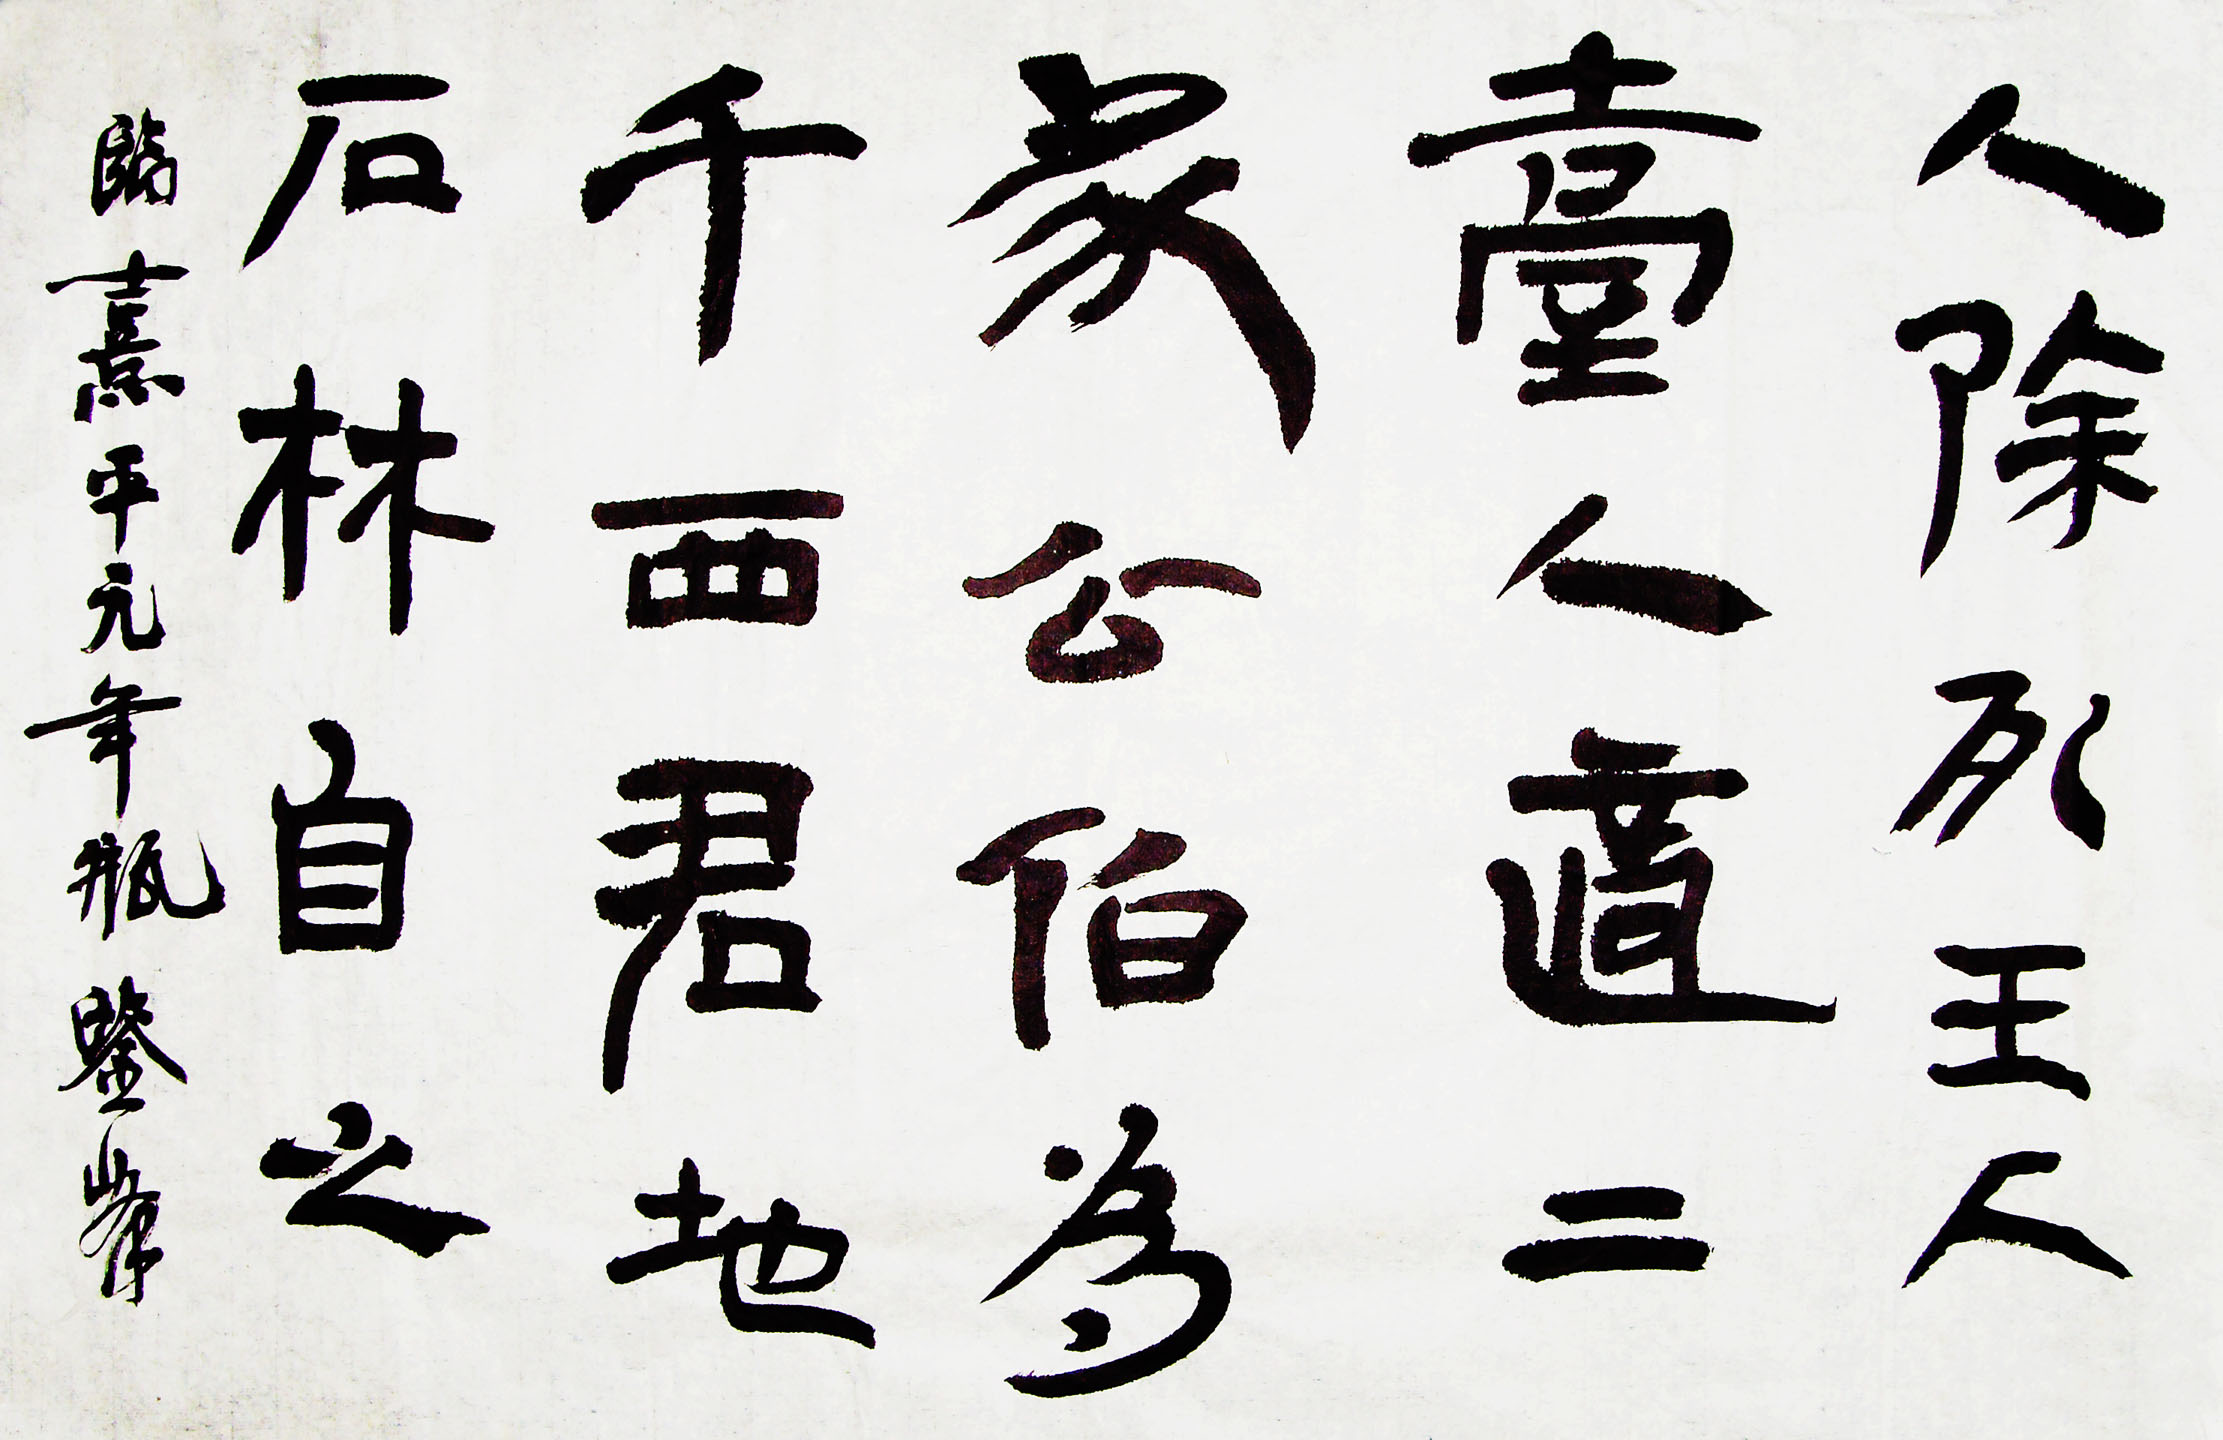 人除列王人
臺人適二
家公伯為
千西君地
石林自之
臨熹平元年瓶鑒峯